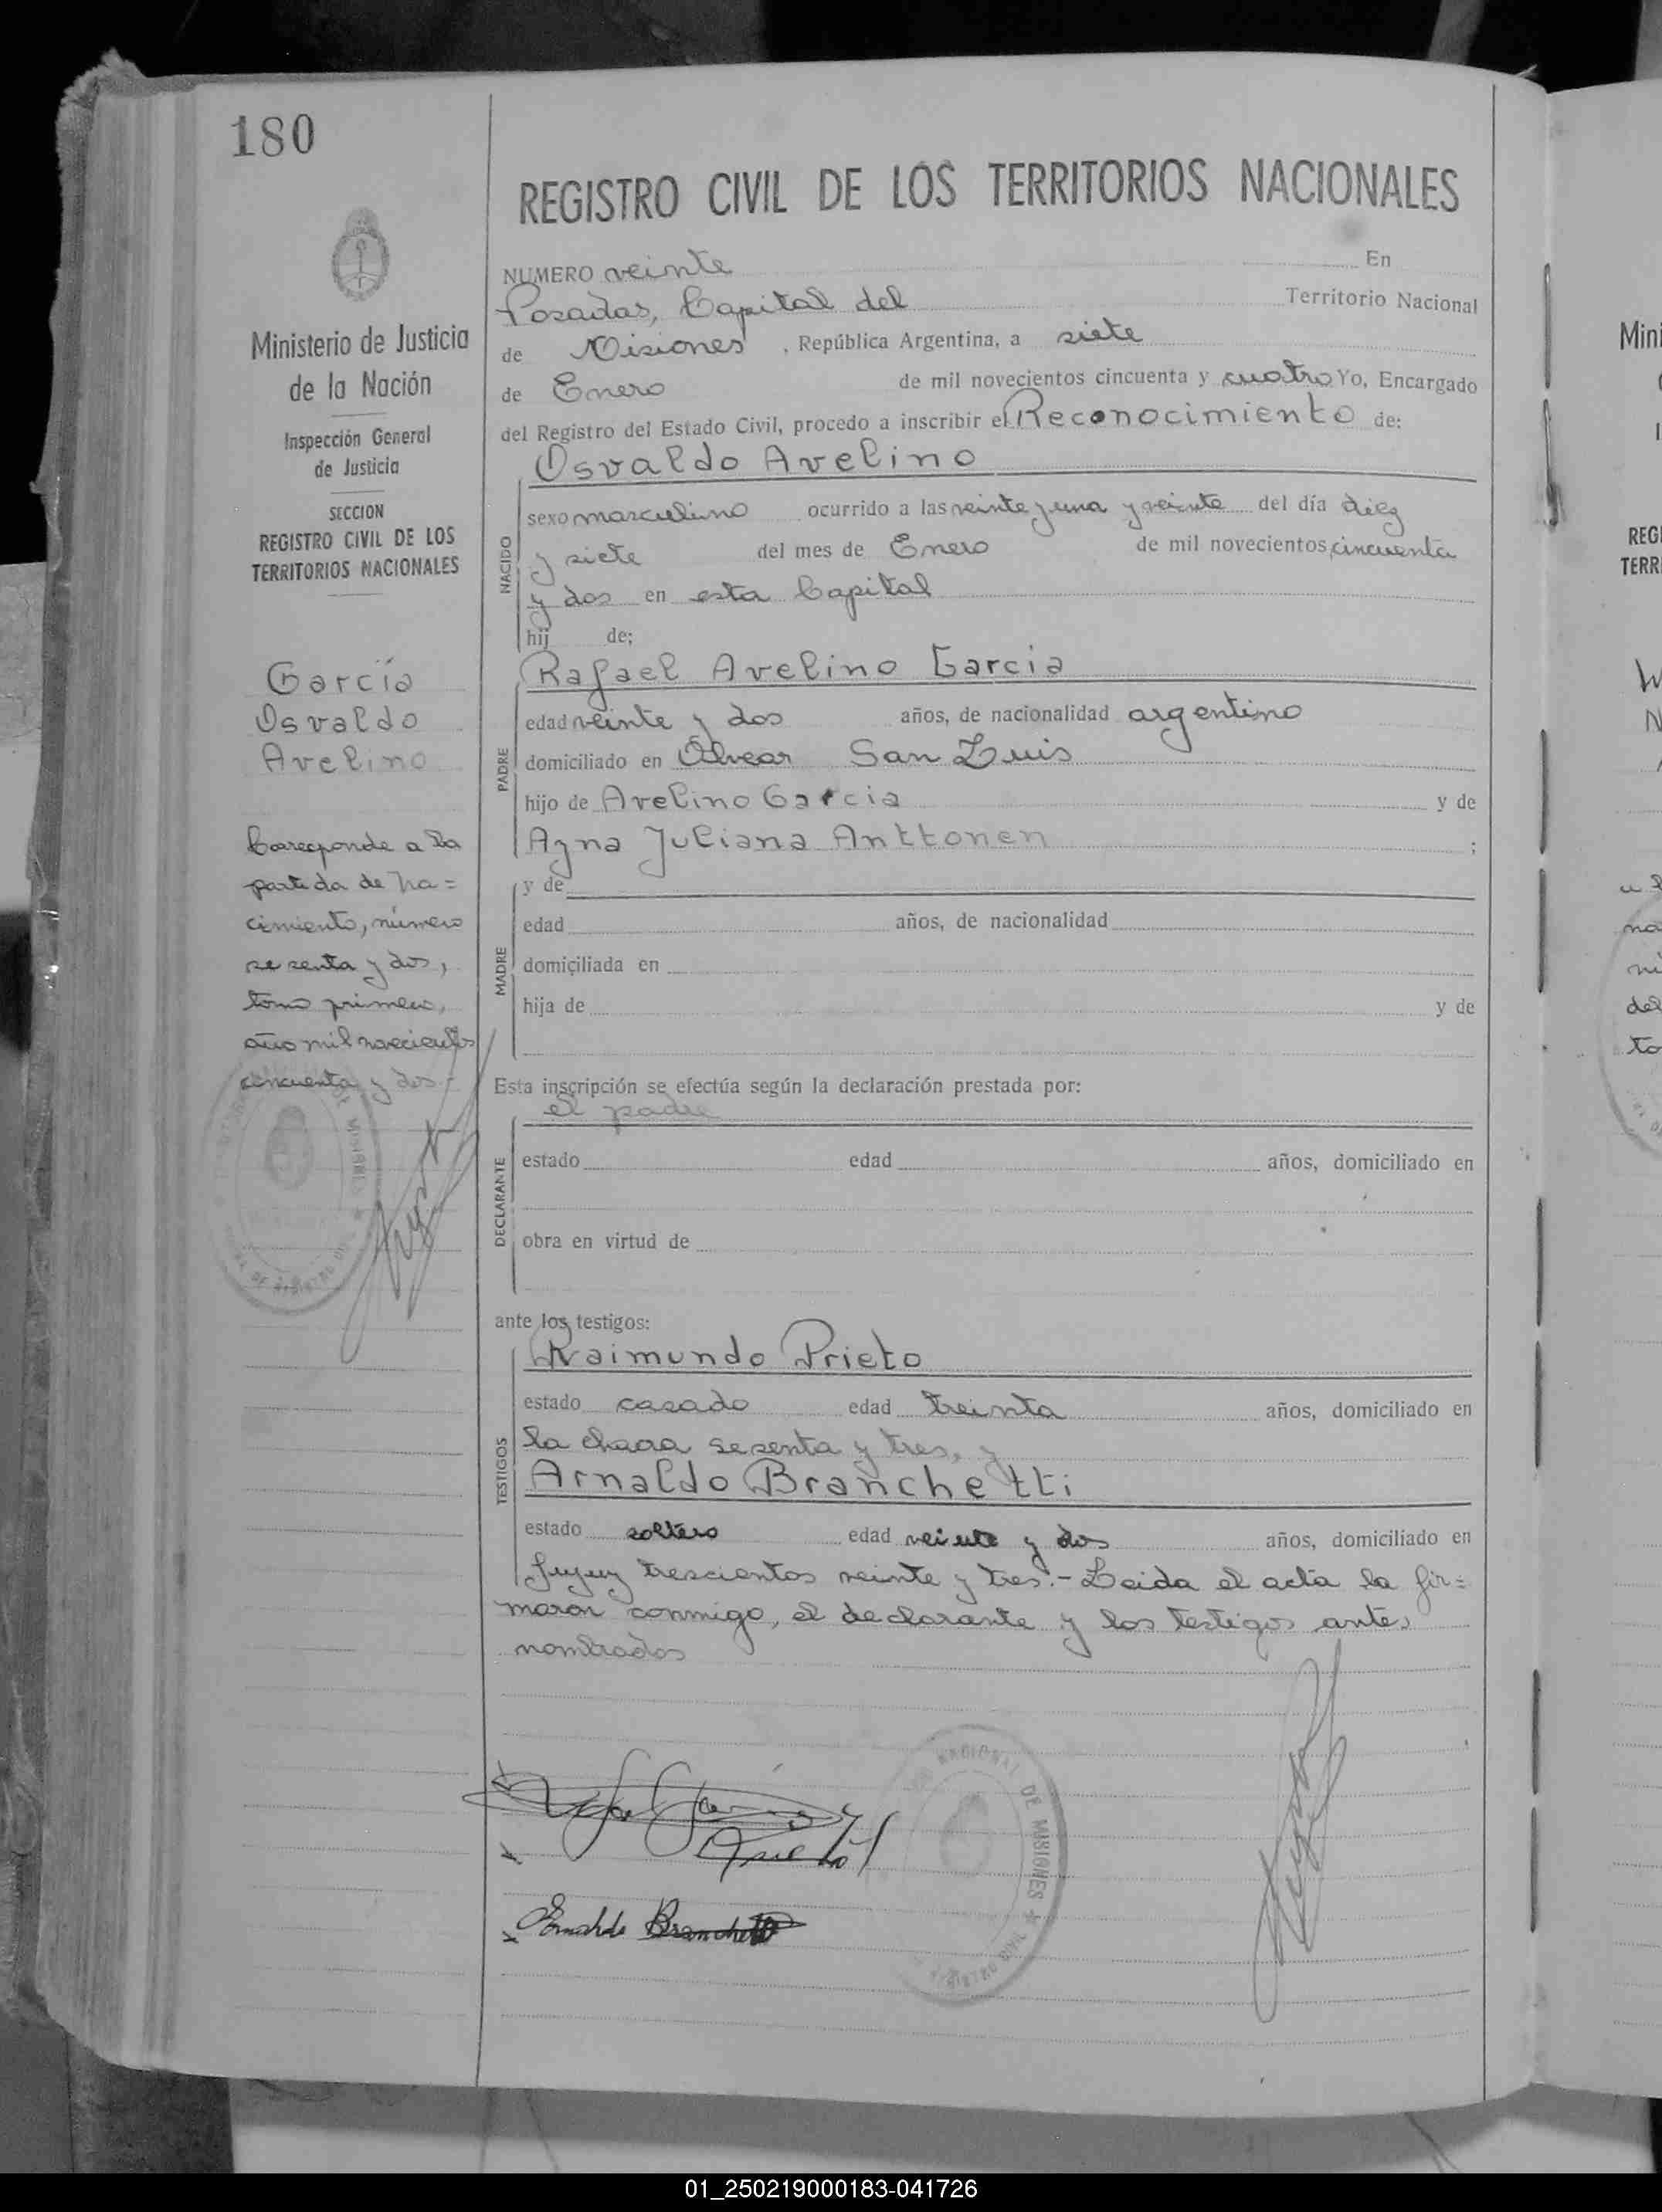 180
REGISTRO CIVIL DE LOS TERRITORIOS NACIONALES
Ministerio de Justicia
de la Nación
Inspección General
de Justicia
SECCION
REGISTRO CIVIL DE LOS
TERRITORIOS NACIONALES
García
Osvaldo
Avelino
Corresponde a la
partida de na=
cimiento, número
sesenta y dos,
tomo primero,
año mil novecientos
cincuenta y dos.-
NUMERO veinte En
Posadas, Capital del Territorio Nacional
de Misiones, República Argentina, a siete
de Enero de mil novecientos cincuenta y cuatro Yo, Encargado
del Registro del Estado Civil, procedo a inscribir el Reconocimiento de:
Osvaldo Avelino
NACIDO
sexo masculino ocurrido a las veinte y una y veinte del día diez
y siete del mes de Enero de mil novecientos cincuenta
y dos en esta Capital
hij de;
Rafael Avelino Garcia
PADRE
edad veinte y dos años, de nacionalidad argentino
domiciliado en Alvear San Luis
hijo de Avelino Garcia y de
Juliana Anttonen ;
MADRE
y de
edad años, de nacionalidad
domiciliada en
hija de y de
Esta inscripción se efectúa según la declaración prestada por:
el padre
DECLARANTE
estado edad años, domiciliado en
obra en virtud de
ante los testigos:
Raimundo Prieto
TESTIGOS
estado casado edad treinta años, domiciliado en
la chacra sesenta y tres, y
Arnaldo Branchetti
estado soltero edad veinte y dos años, domiciliado en
Jujuy trescientos veinte y tres.- Leida el acta la fir=
maron conmigo, el declarante y los testigos antes
nombrados
NACIONAL DE MISIONES
Mini
REGI
TERRI
01_250219000183-041726